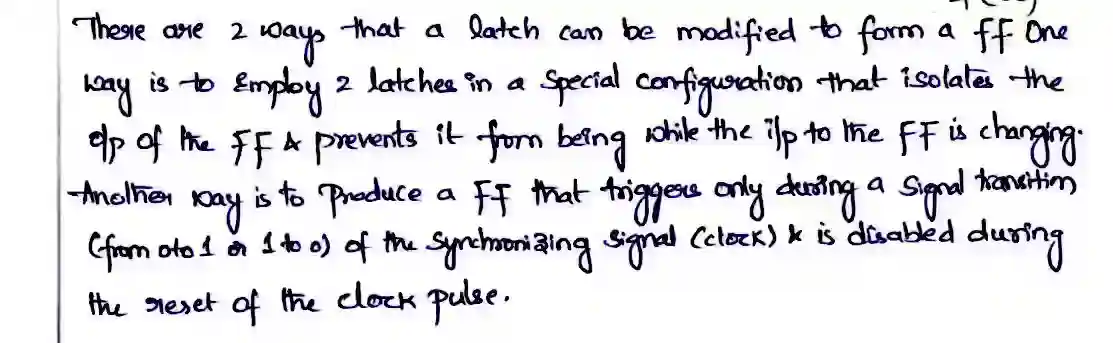 There are 2 ways that a latch can be modified to form a FF One
way is to Employ 2 latches in a special configuration that isolates the
o/p of the FF & prevents it from being while the i/p to the FF is changing.
Another way is to produce a FF that triggers only during a signal transition
(from 0 to 1 or 1 to 0) of the synchronizing signal (clock) & is disabled during
the reset of the clock pulse.